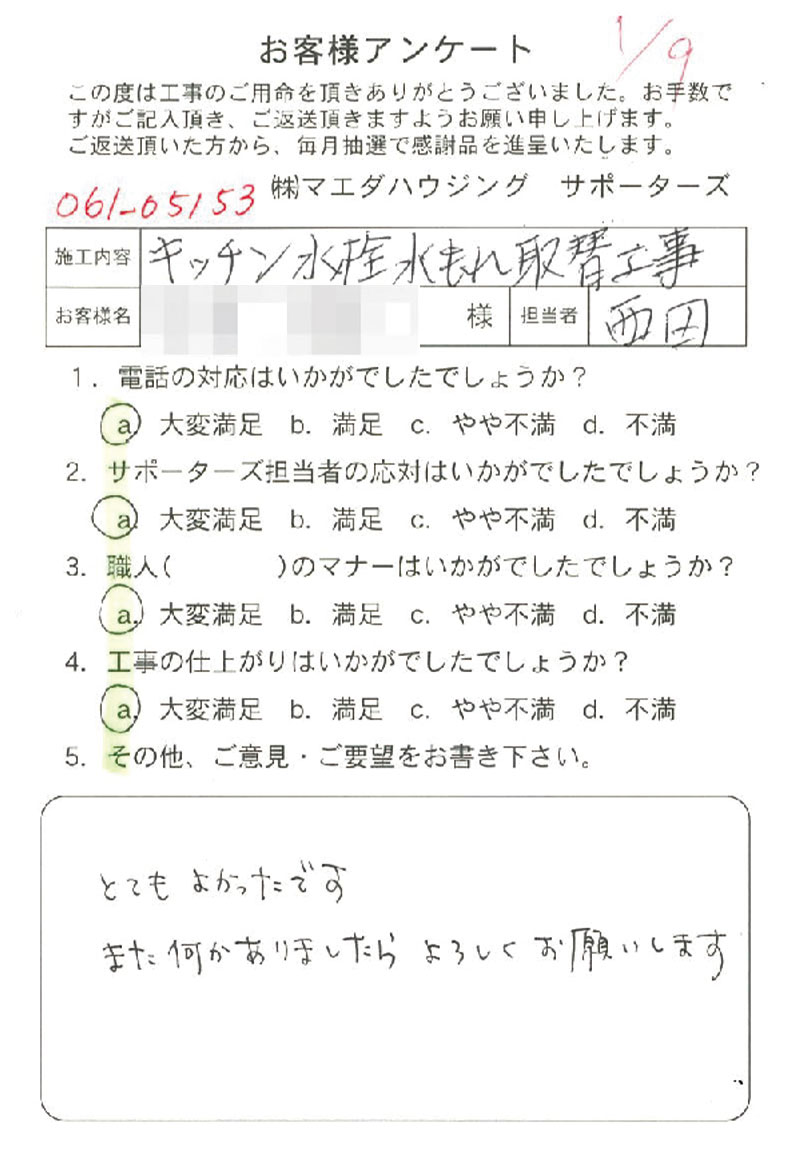 お客様アンケート
1/9
この度は工事のご用命を頂きありがとうございました。お手数で
すがご記入頂き、ご返送頂きますようお願い申し上げます。
ご返送頂いた方から、毎月抽選で感謝品を進呈いたします。
061-05153
㈱マエダハウジング サポーターズ
施工内容 キッチン水栓水もれ取替工事
お客様名 様 担当者 西田
1. 電話の対応はいかがでしたでしょうか？
a. 大変満足 b. 満足 c. やや不満 d. 不満
2. サポーターズ担当者の応対はいかがでしたでしょうか？
a. 大変満足 b. 満足 c. やや不満 d. 不満
3. 職人( )のマナーはいかがでしたでしょうか？
a. 大変満足 b. 満足 c. やや不満 d. 不満
4. 工事の仕上がりはいかがでしたでしょうか？
a. 大変満足 b. 満足 c. やや不満 d. 不満
5. その他、ご意見・ご要望をお書き下さい。
とてもよかったです
また何かありましたら よろしく お願いします